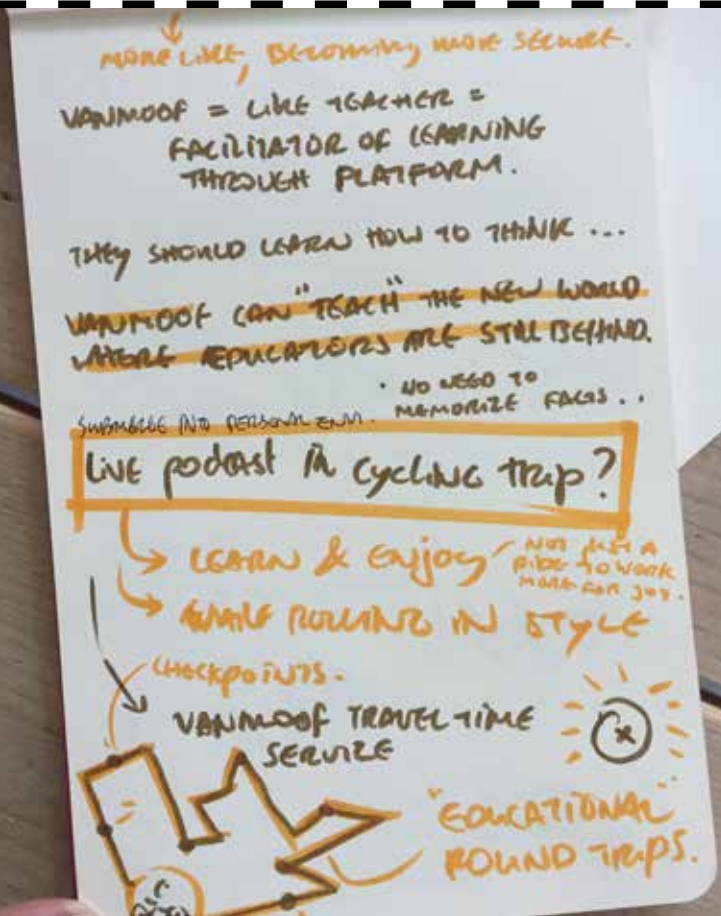 MORE LIKE, BECOMING MORE SECURE.
VANMOOF = LIKE TEACHER =
FACILITATOR OF LEARNING
THROUGH PLATFORM.
THEY SHOULD LEARN HOW TO THINK ...
VANMOOF CAN "TEACH" THE NEW WORLD
WHERE EDUCATORS ARE STILL BEHIND.
· NO NEED TO
MEMORIZE FACTS . .
SUBMERGE INTO PERSONAL ENVI.
LIVE podcast IN cycling trip?
LEARN & ENJOY
NOT JUST A
RIDE TO WORK
MORE FOR JOY.
WHILE ROLLING IN STYLE
CHECKPOINTS.
VANMOOF TRAVEL TIME
SERVICE
"EDUCATIONAL"
ROUND TRIPS.